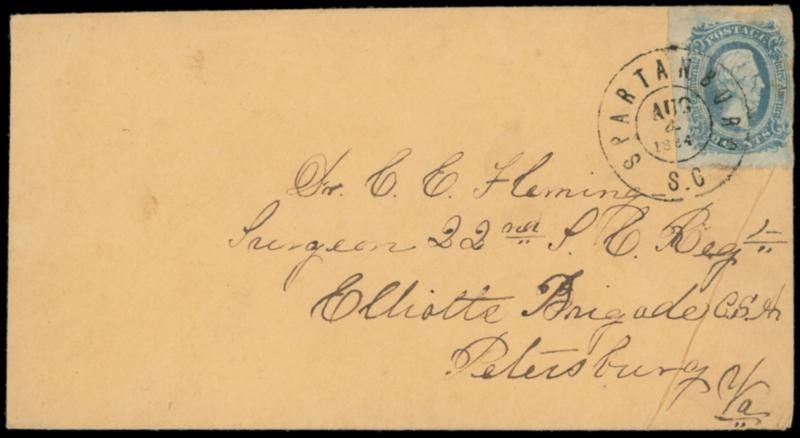 POSTAGE
CENTS
SPARTANBURG
AUG
4
1864
S.C
Dr. C. E. Fleming
Surgeon 22nd S. C. Regt
Elliotts Brigade C.S.A.
Petersburg
Va